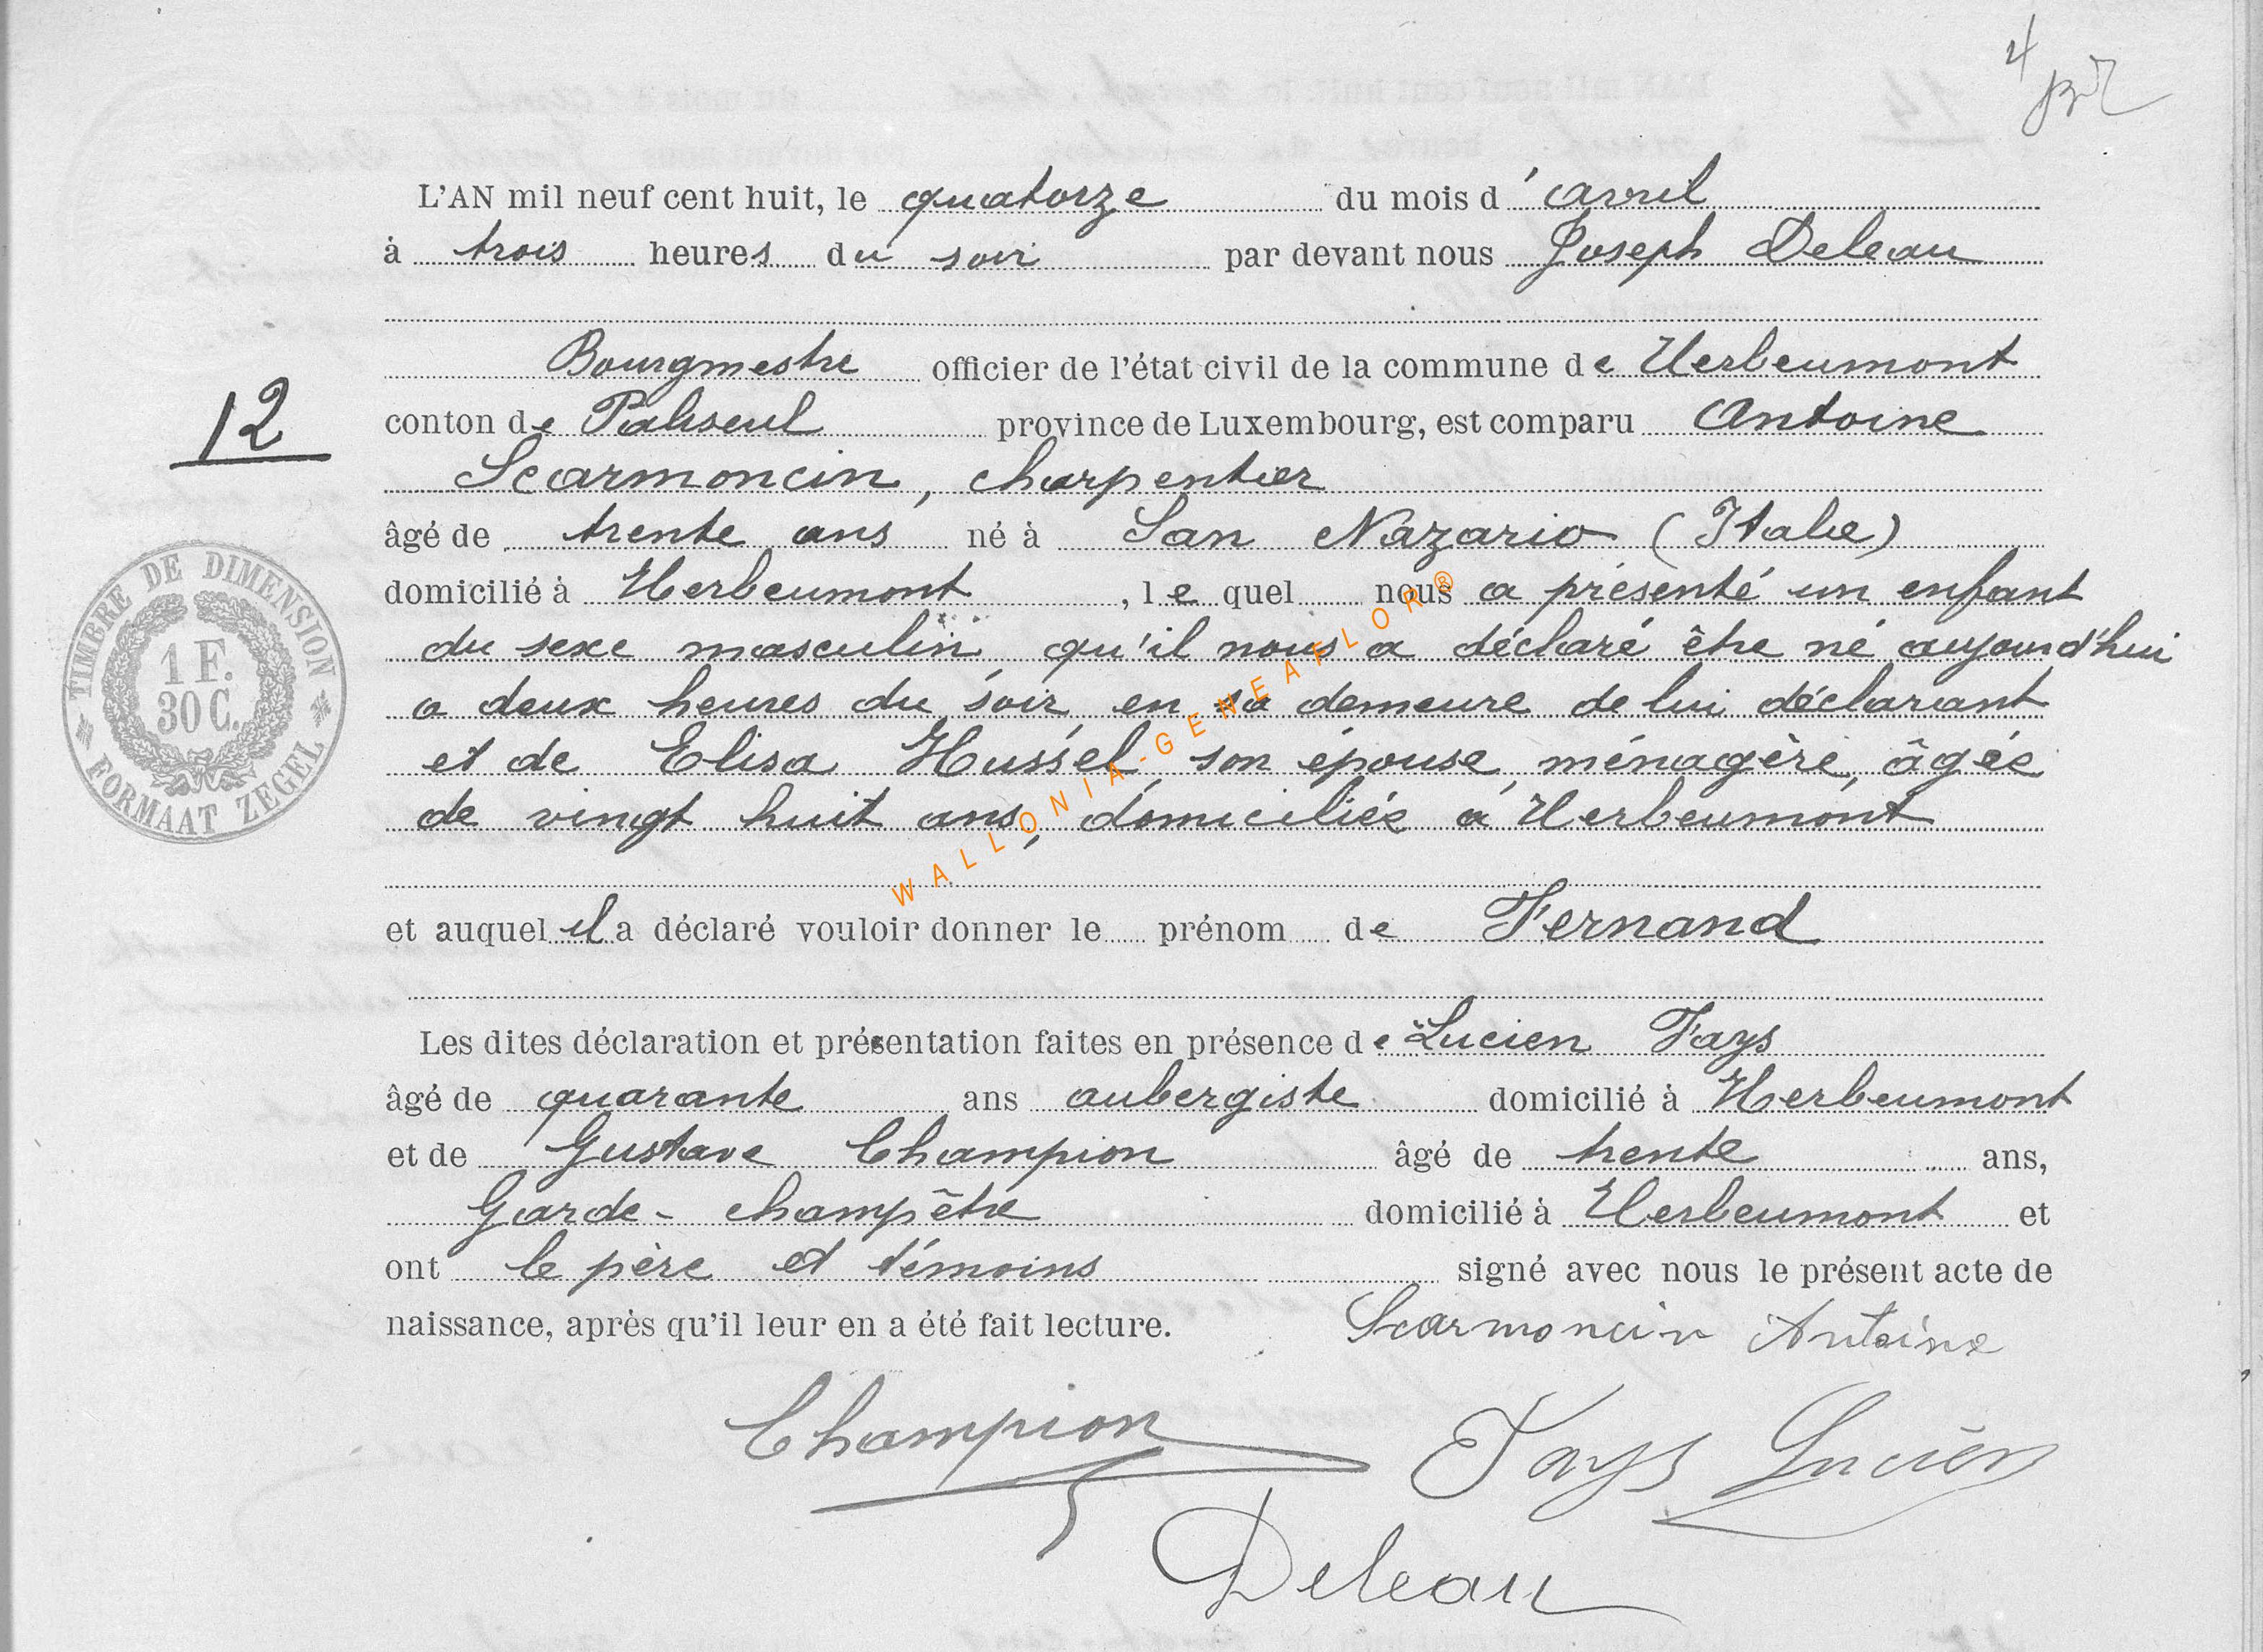 4
L'AN mil neuf cent huit, le quatorze du mois d'avril
à trois heures du soir par devant nous Joseph Deleau
Bourgmestre officier de l'état civil de la commune de Herbeumont
12
conton de Paliseul province de Luxembourg, est comparu Antoine
Scarmoncin, charpentier
âgé de trente ans né à San Nazario (Italie)
domicilié à Herbeumont, le quel nous a présenté un enfant
du sexe masculin qu'il nous a déclaré être né aujourd'hui
a deux heures du soir, en sa demeure de lui déclarant
et de Elisa Hussel, son épouse, ménagère, âgée
de vingt huit ans, domiciliée à Herbeumont
TIMBRE DE DIMENSION
1 F.
30 C.
FORMAAT ZEGEL
WALLONIA-GENEAFLOR®
et auquel il a déclaré vouloir donner le prénom de Fernand
Les dites déclaration et présentation faites en présence de Lucien Fays
âgé de quarante ans aubergiste domicilié à Herbeumont
et de Gustave Champion âgé de trente ans,
Garde-champêtre domicilié à Herbeumont et
ont le père et témoins signé avec nous le présent acte de
naissance, après qu'il leur en a été fait lecture. Scarmoncin Antoine
Champion Fays Lucien
Deleau